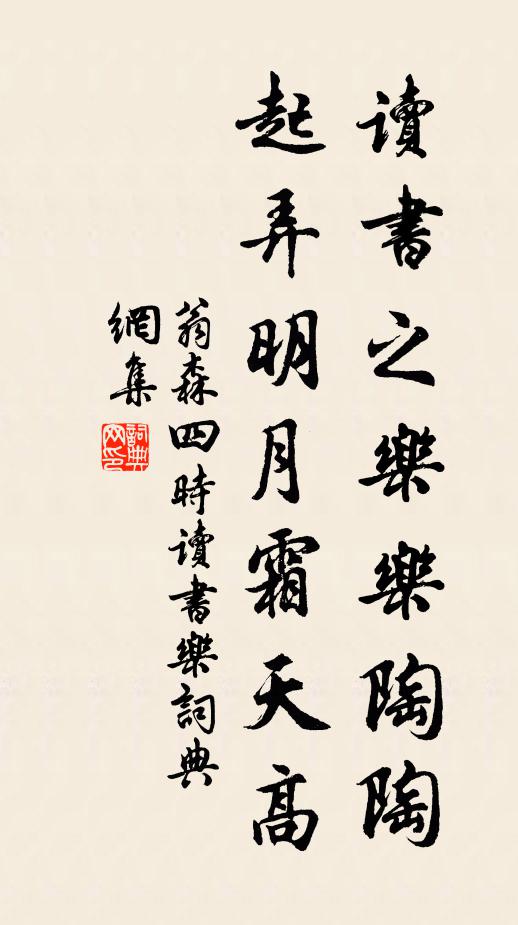 讀書之樂樂陶陶
起弄明月霜天高
翁森四時讀書樂詞典
網集
詞典
网印